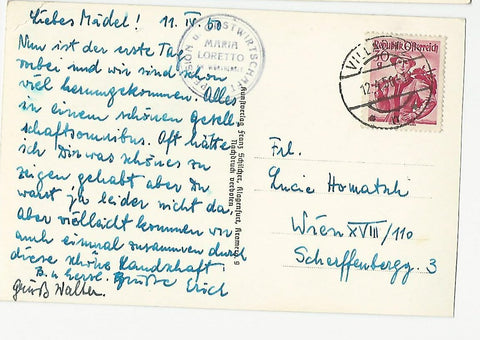 Liebes Mädel! 11. IV. 50
Nun ist der erste Tag
vorbei und wir sind schon
viel herumgekommen. Alles
in einem schönen Gesell-
schaftsomnibus. Oft hätte
ich Dir was schönes zu
zeigen gehabt aber Du
warst ja leider nicht da
aber vielleicht kommen wir
auch einmal zusammen durch
diese schöne Landschaft
B. u. Grüße Erich
Gruß Walter.
PENSION u. GASTWIRTSCHAFT
MARIA
LORETTO
Kunstverlag Franz Schilcher, Klagenfurt,
Nachdruck verboten
Republik Österreich
12.4.50
Frl.
Lucie Homatsch
Wien XVIII/110
Scherffenbergg. 3